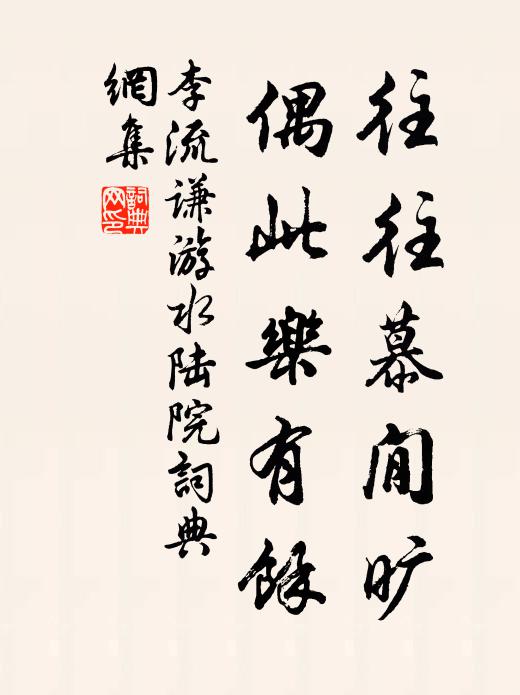 往往慕閒旷
偶此樂有餘
李流谦游水陆院詞典
網集
詞典网印